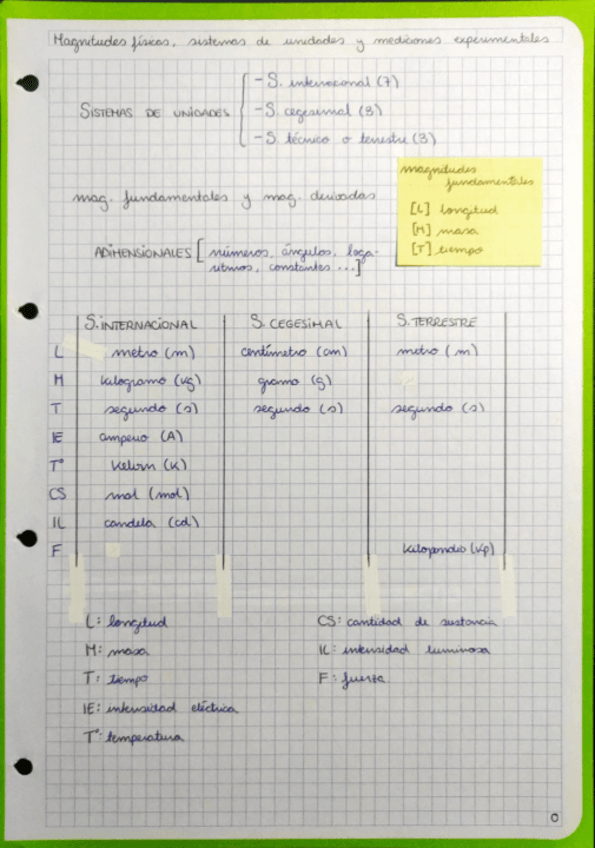 Magnitudes físicas, sistemas de unidades y mediciones experimentales
SISTEMAS DE UNIDADES
- S. internacional (7)
- S. cegesimal (3)
- S. técnico o terrestre (3)
mag. fundamentales y mag. derivadas
magnitudes
fundamentales
[L] longitud
[M] masa
[T] tiempo
ADIMENSIONALES [números, ángulos, loga-
ritmos, constantes ...]
S. INTERNACIONAL S. CEGESIMAL S. TERRESTRE
L metro (m) centímetro (cm) metro (m)
M kilogramo (kg) gramo (g)
T segundo (s) segundo (s) segundo (s)
IE amperio (A)
Tº Kelvin (K)
CS mol (mol)
IL candela (cd)
F kilopondio (kp)
L: longitud
M: masa
T: tiempo
IE: intensidad eléctrica
Tº: temperatura
CS: cantidad de sustancia
IL: intensidad luminosa
F: fuerza
0